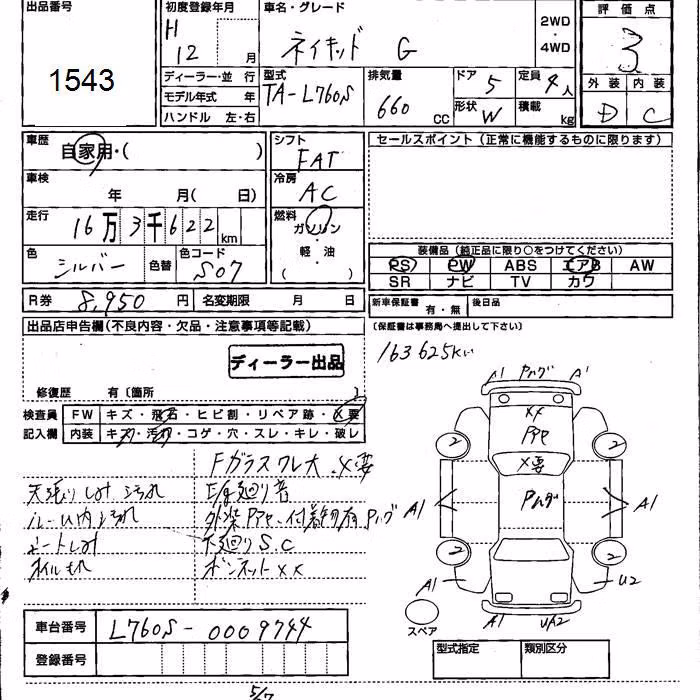 出品番号
1543
初度登録年月
H
12 月
車名・グレード
ネイキッド G
2WD
・
4WD
評価点
3
外装 内装
D C
ディーラー・並 行
モデル年式 年
ハンドル 左・右
型式
TA-L760S
排気量
660 cc
ドア 5
形状 W
定員 4人
積載 kg
車歴
自家用・( )
車検
年 月( 日)
走行
16万3千622km
色
シルバー 色替
色コード
S07
シフト
FAT
冷房
AC
燃料
ガソリン
・
軽・油
( )
セールスポイント(正常に機能するものに限ります)
装備品(純正品に限り○をつけてください)
PS PW ABS エアB AW
SR ナビ TV カワ
R券 8,950 円 名変期限 月 日
新車保証書 有・無 後日品
(保証書は事務局へ提出して下さい)
出品店申告欄(不良内容・欠品・注意事項等記載)
ディーラー出品
修復歴 有〔箇所 〕
163625K
検査員 FW キズ・飛石・ヒビ割・リペア跡・X要
記入欄 内装 キズ・汚れ・コゲ・穴・スレ・キレ・破レ
Fガラスワレ大 X要
天張りしみ 汚れ E/g廻り音
ルーム内汚れ
シートしみ 下廻りS.C
オイルもれ ボンネットXX
A1 A
XX
X要
2 2
A1 A1
2 2
A1 U2
A1 UA2
スペア
車台番号 L760S-0009744
登録番号
型式指定 類別区分
5/7